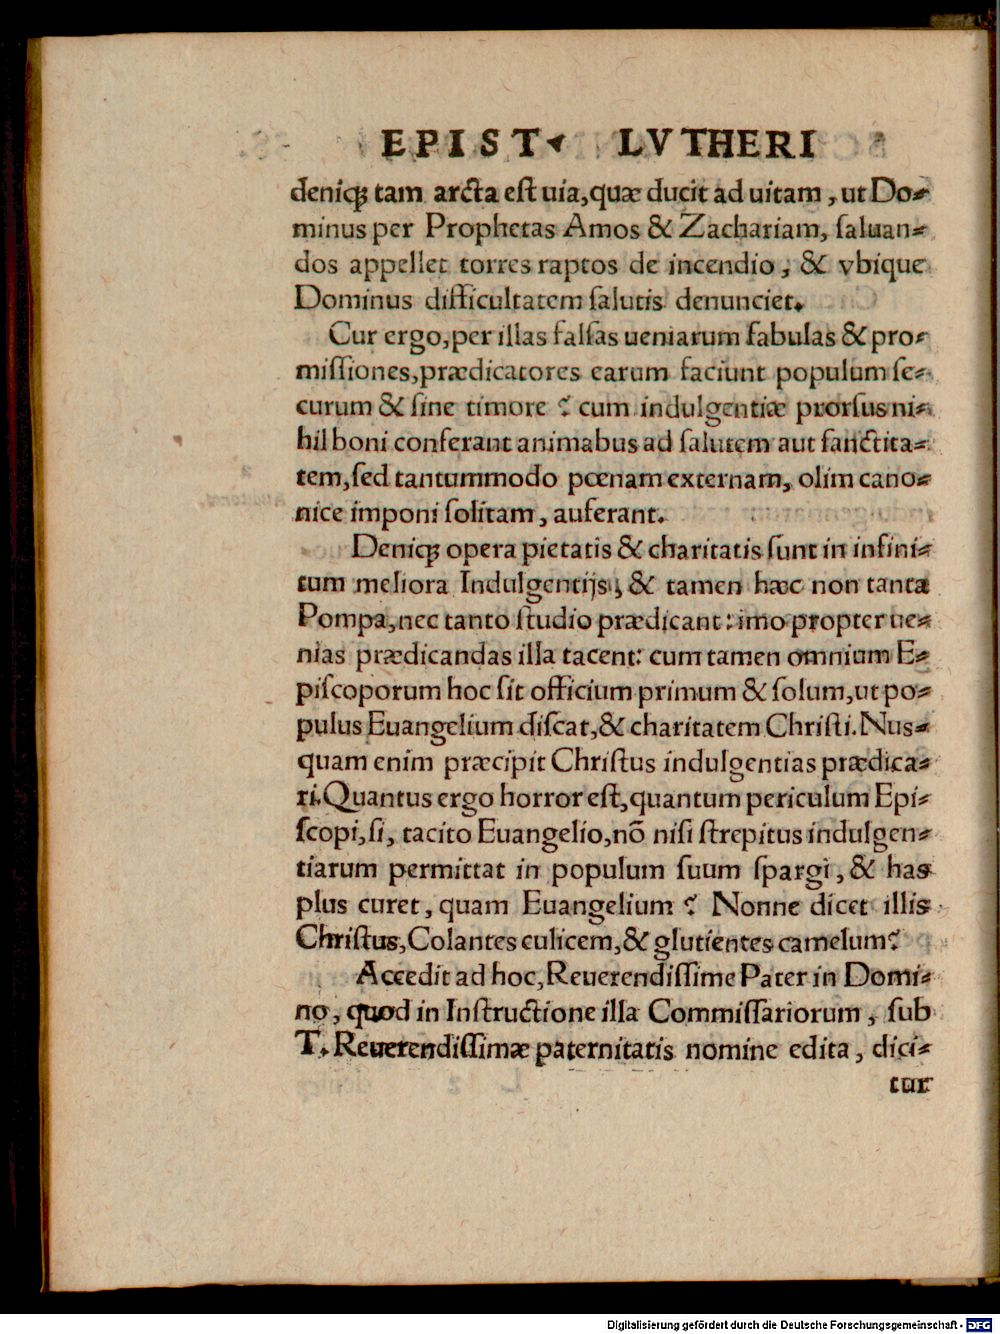 EPIST. LVTHERI
deniqꝫ tam arcta eſt uia, quæ ducit ad uitam, ut Do-
minus per Prophetas Amos & Zachariam, ſaluan-
dos appellet torres raptos de incendio, & vbique
Dominus difficultatem ſalutis denunciet.
Cur ergo, per illas falſas ueniarum fabulas & pro-
miſſiones, prædicatores earum faciunt populum ſe-
curum & ſine timore? cum indulgentiæ prorſus ni-
hil boni conferant animabus ad ſalutem aut ſanctita-
tem, ſed tantummodo pœnam externam, olim cano-
nice imponi ſolitam, auferant.
Deniqꝫ opera pietatis & charitatis ſunt in infini-
tum meliora Indulgentijs, & tamen hæc non tanta
Pompa, nec tanto ſtudio prædicant: imo propter ue-
nias prædicandas illa tacent: cum tamen omnium E-
piſcoporum hoc ſit officium primum & ſolum, ut po-
pulus Euangelium diſcat, & charitatem Chriſti. Nus-
quam enim præcipit Chriſtus indulgentias prædica-
ri. Quantus ergo horror eſt, quantum periculum Epi-
ſcopi, ſi, tacito Euangelio, nõ niſi ſtrepitus indulgen-
tiarum permittat in populum ſuum ſpargi, & has
plus curet, quam Euangelium? Nonne dicet illis
Chriſtus, Colantes culicem, & glutientes camelum?
Accedit ad hoc, Reuerendiſſime Pater in Domi-
no, quod in Inſtructione illa Commiſſariorum, ſub
T. Reuerendiſſimæ paternitatis nomine edita, dici-
tur
Digitalisierung gefördert durch die Deutsche Forschungsgemeinschaft - DFG